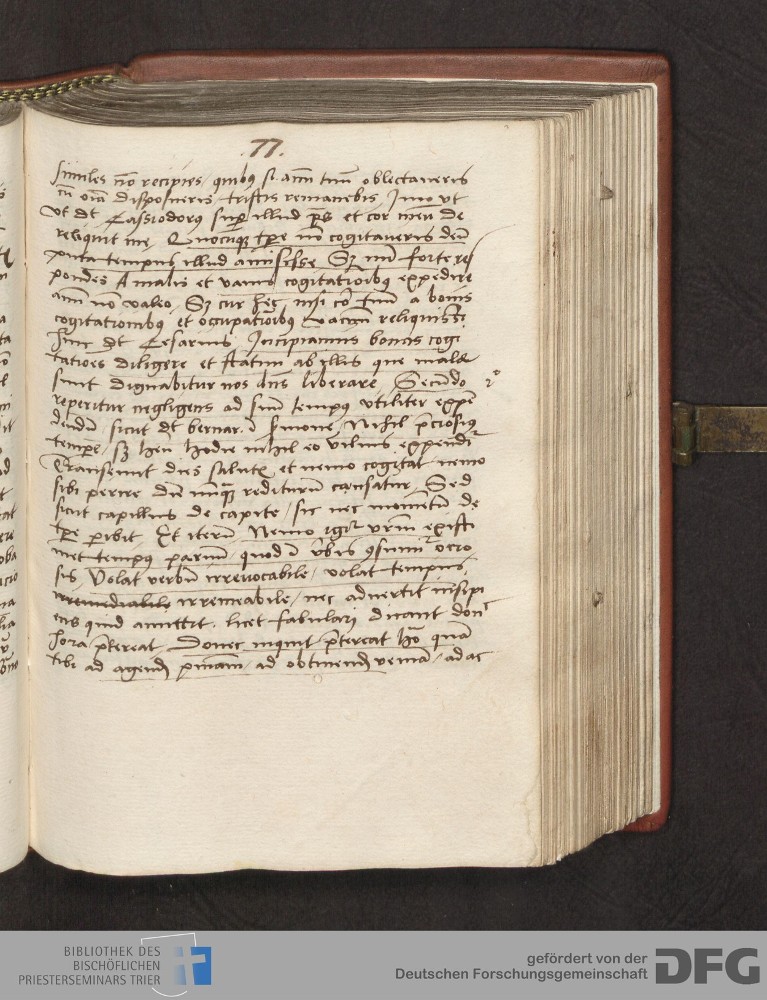 .77.
similes nō recipies, quibꝯ si aīm tuū oblectaveris
cū oīa disposueris tristis remanebis, Imo vt
vt dt Cassiodorꝯ sup illud ps et cor meū de
reliquit me, Quocūqꝫ tpe nō cogitaveris deū
puta tempus illud amisisse, Sꝫ mī forte res
pondes A malis et vanis cogitatioibꝯ expedire
aīm nō valeo, Sꝫ cur hec nisi cor tuū a bonis
cogitationibꝯ et occupatioībꝯ vacuū reliquisti
sinc dt Cesarius, Incipiamus bonas cogi
tatioes diligere et statim ab illis que male
sunt dignabitur nos dn̄s liberare, Secūdo 2º
reperitur negligens ad suū tempus vtiliter expē
dendū, sicut dt bernar. ī sermone, Nihil p̄ciosiꝯ
tempe, sꝫ heu hodie nihil eo vilius expendit̄
Transeunt dies salutꝭ et nemo cogitat, nemo
sibi perire diē nūqꝫ rediturū causatur, Sed
sicut capillus de capite, sic nec momētū de
tpe pibit Et iterū Nemo igit̄ vrm̄ existi
met tempꝯ parvū, quod ī vbis ꝯsumit̄ ocio
sis, Volat verbū irrevocabile, volat tempus
irremediabile irremeabile, nec advertit insipi
ens quid amittit. licet fabulari dicant donec
hora p̄tereat, Donec inquit p̄tereat ho quā
tibi ad agendā pn̄iam, ad obtinendā veniā, ad ac
BIBLIOTHEK DES
BISCHÖFLICHEN
PRIESTERSEMINARS TRIER
gefördert von der
Deutschen Forschungsgemeinschaft DFG